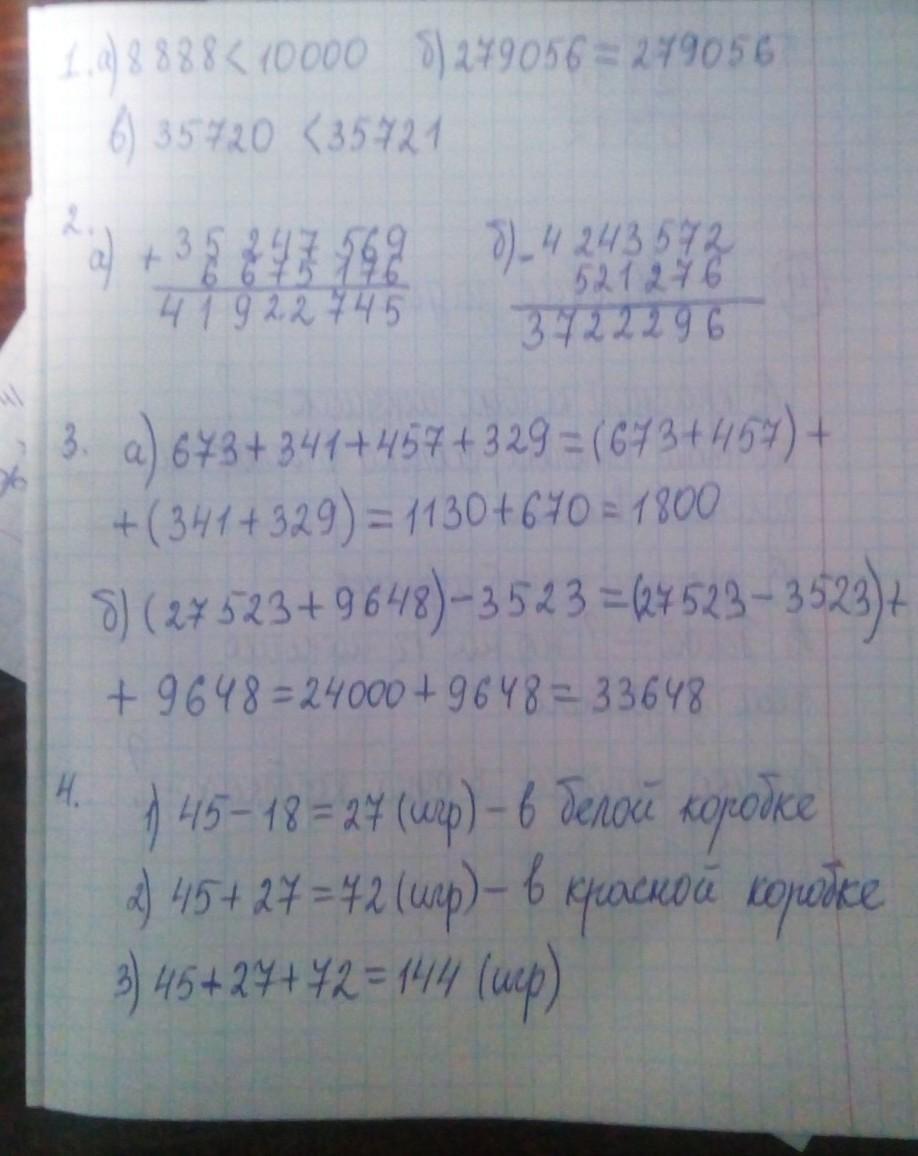 1. а) 8888 < 10000 б) 279056 = 279056
в) 35720 < 35721
2.
а) + 35 247 569 б) - 4 243 572
6 675 176 521 276
41 922 745 3722296
3. а) 673 + 341 + 457 + 329 = (673 + 457) +
+ (341 + 329) = 1130 + 670 = 1800
б) (27 523 + 9648) - 3523 = (27523 - 3523) +
+ 9648 = 24000 + 9648 = 33648
4.
1) 45 - 18 = 27 (игр) - в белой коробке
2) 45 + 27 = 72 (игр) - в красной коробке
3) 45 + 27 + 72 = 144 (игр)